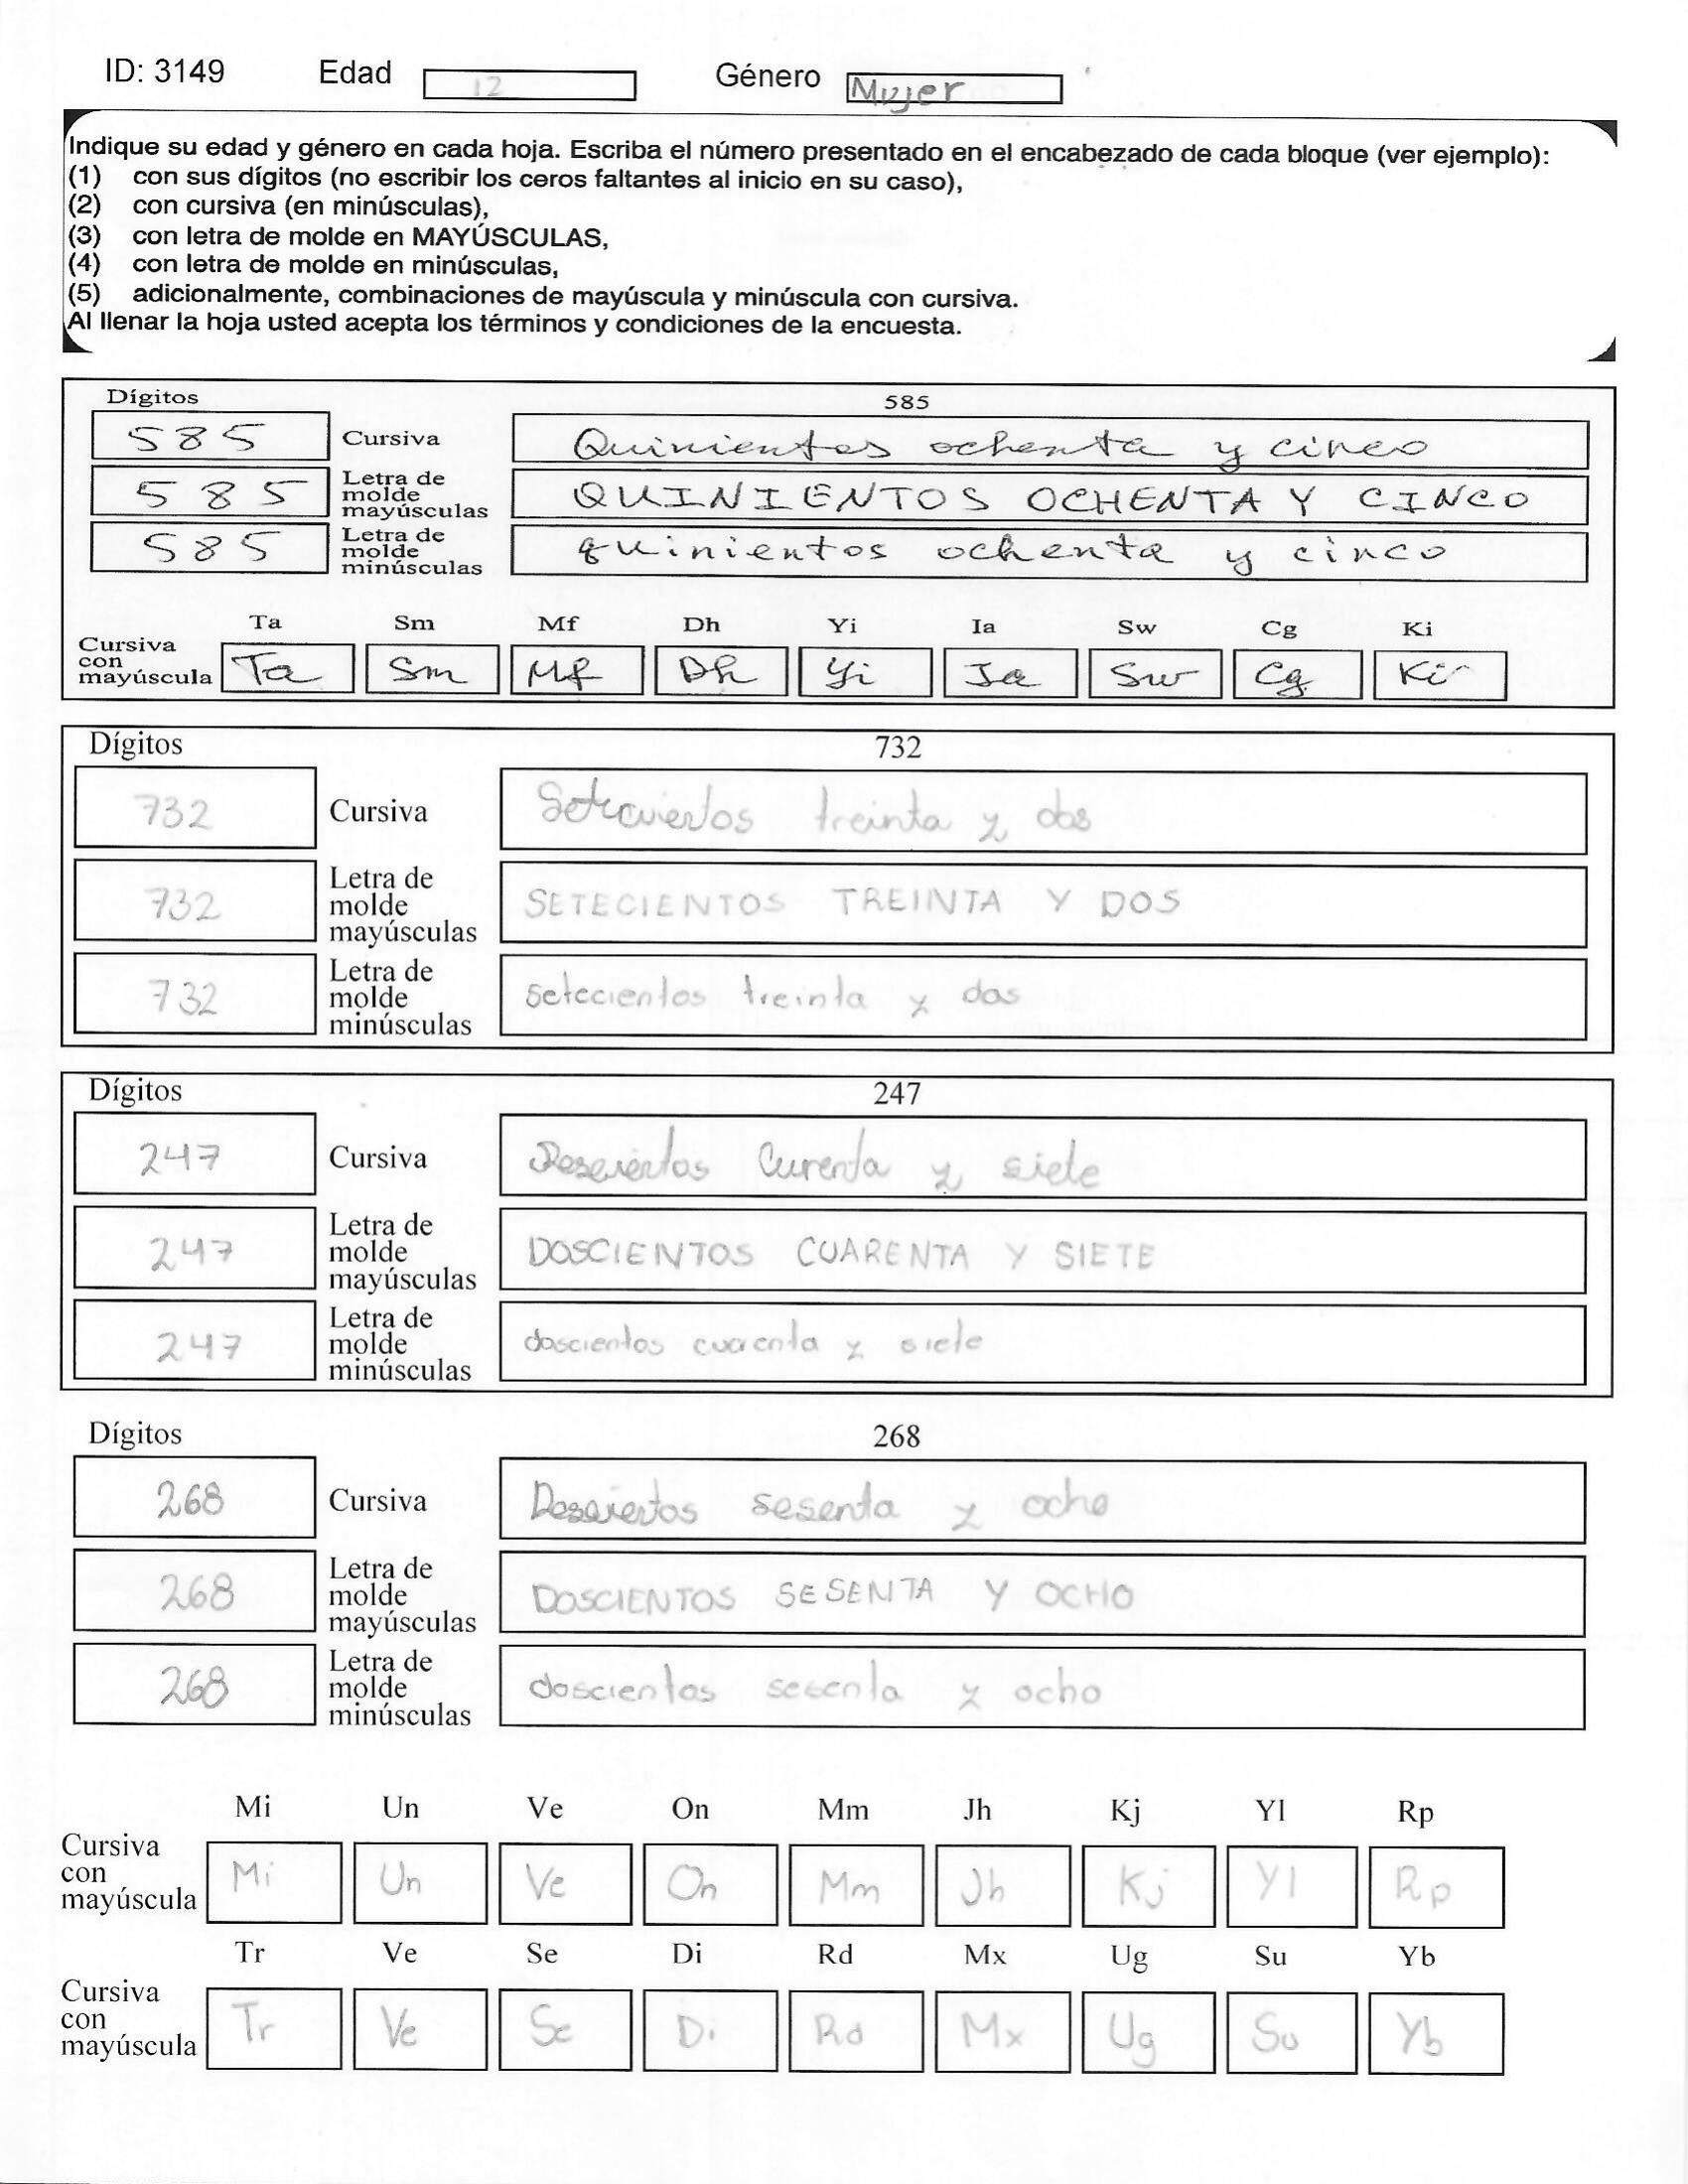 ID: 3149 Edad 12 Género Mujer
Indique su edad y género en cada hoja. Escriba el número presentado en el encabezado de cada bloque (ver ejemplo):
(1) con sus dígitos (no escribir los ceros faltantes al inicio en su caso),
(2) con cursiva (en minúsculas),
(3) con letra de molde en MAYÚSCULAS,
(4) con letra de molde en minúsculas,
(5) adicionalmente, combinaciones de mayúscula y minúscula con cursiva.
Al llenar la hoja usted acepta los términos y condiciones de la encuesta.
Dígitos 585
585 Cursiva Quinientos ochenta y cinco
585 Letra de molde mayúsculas QUINIENTOS OCHENTA Y CINCO
585 Letra de molde minúsculas quinientos ochenta y cinco
Ta Sm Mf Dh Yi Ia Sw Cg Ki
Cursiva con mayúscula Ta Sm Mf Dh Yi Ia Sw Cg Ki
Dígitos 732
732 Cursiva Setecientos treinta y dos
732 Letra de molde mayúsculas SETECIENTOS TREINTA Y DOS
732 Letra de molde minúsculas setecientos treinta y dos
Dígitos 247
247 Cursiva Doscientos Curenta y siete
247 Letra de molde mayúsculas DOSCIENTOS CUARENTA Y SIETE
247 Letra de molde minúsculas doscientos cuarenta y siete
Dígitos 268
268 Cursiva Doscientos sesenta y ocho
268 Letra de molde mayúsculas DOSCIENTOS SESENTA Y OCHO
268 Letra de molde minúsculas doscientos sesenta y ocho
Mi Un Ve On Mm Jh Kj Yl Rp
Cursiva con mayúscula Mi Un Ve On Mm Jh Kj Yl Rp
Tr Ve Se Di Rd Mx Ug Su Yb
Cursiva con mayúscula Tr Ve Se Di Rd Mx Ug Su Yb